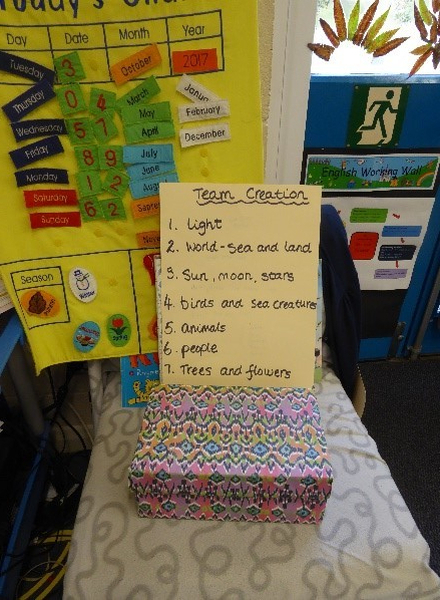 Day Date Month Year
Tuesday 3 October 2017
Thursday 0 4 March
Wednesday 5 7 May February
Friday April December
Monday 8 9 July
Saturday 1 2 June
Sunday 6 2
Season
English Working Wall
Team Creation
1. light
2. World - Sea and land
3. Sun, moon, stars
4. birds and sea creatures
5. animals
6. people
7. Trees and flowers